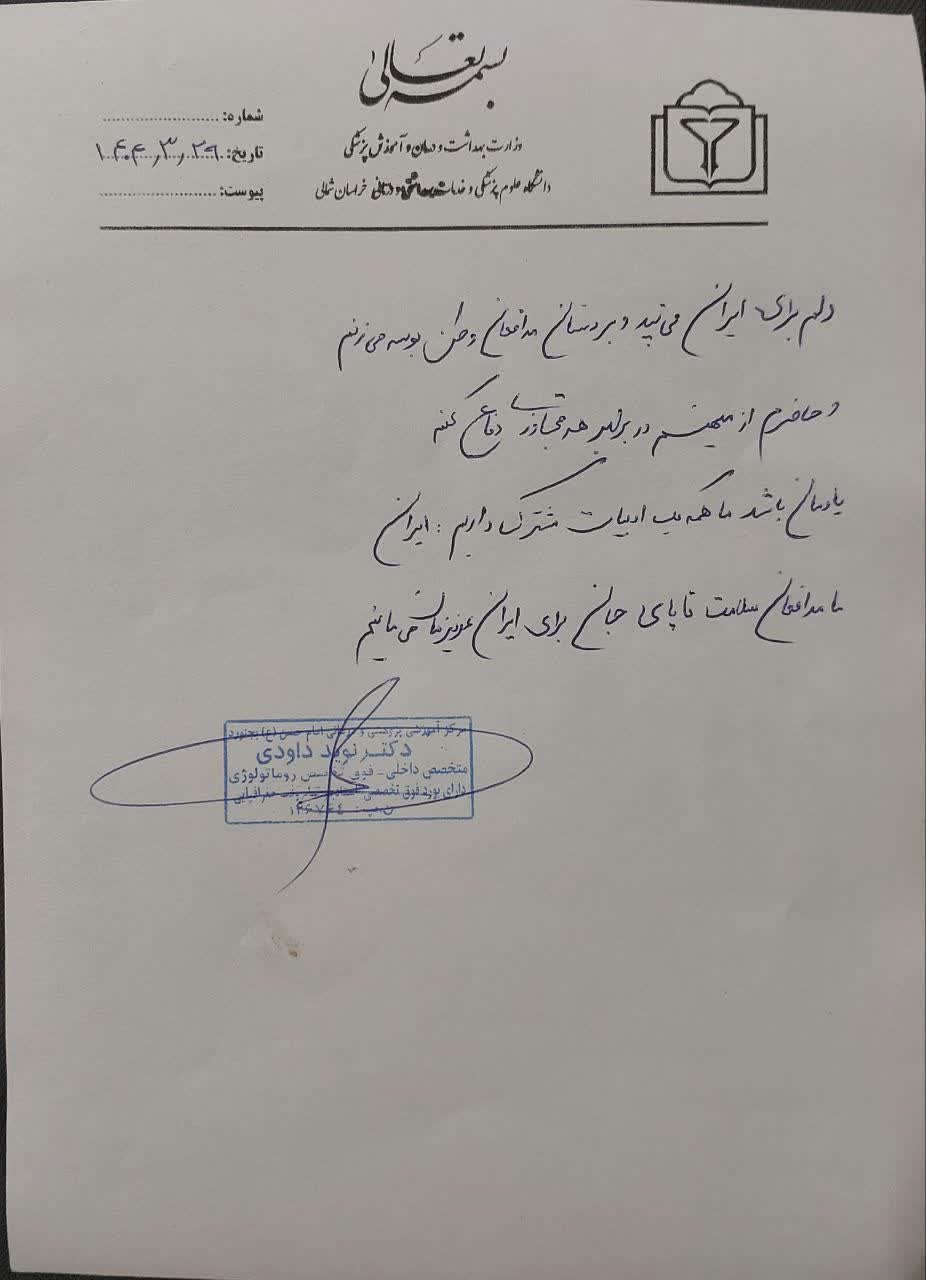 بسمه تعالی
وزارت بهداشت و درمان و آموزش پزشکی
دانشگاه علوم پزشکی و خدمات بهداشتی و درمانی خراسان شمالی
شماره:
تاریخ: ۱۴۰۴٫۳٫۲۹
پیوست:
دلم برای ایران می‌تپد و بر دستان مدافعان وطن بوسه می‌زنم
و حاضرم از میهنم در برابر هر متجاوزی دفاع کنم
یادمان باشد ما همه یک ادبیات مشترک داریم : ایران
ما مدافعان سلامت تا پای جان برای ایران عزیزمان می‌مانیم
مرکز آموزشی پژوهشی و درمانی امام حسن (ع) بجنورد
دکتر نوید داودی
متخصص داخلی - فوق تخصص روماتولوژی
دارای بورد فوق تخصصی